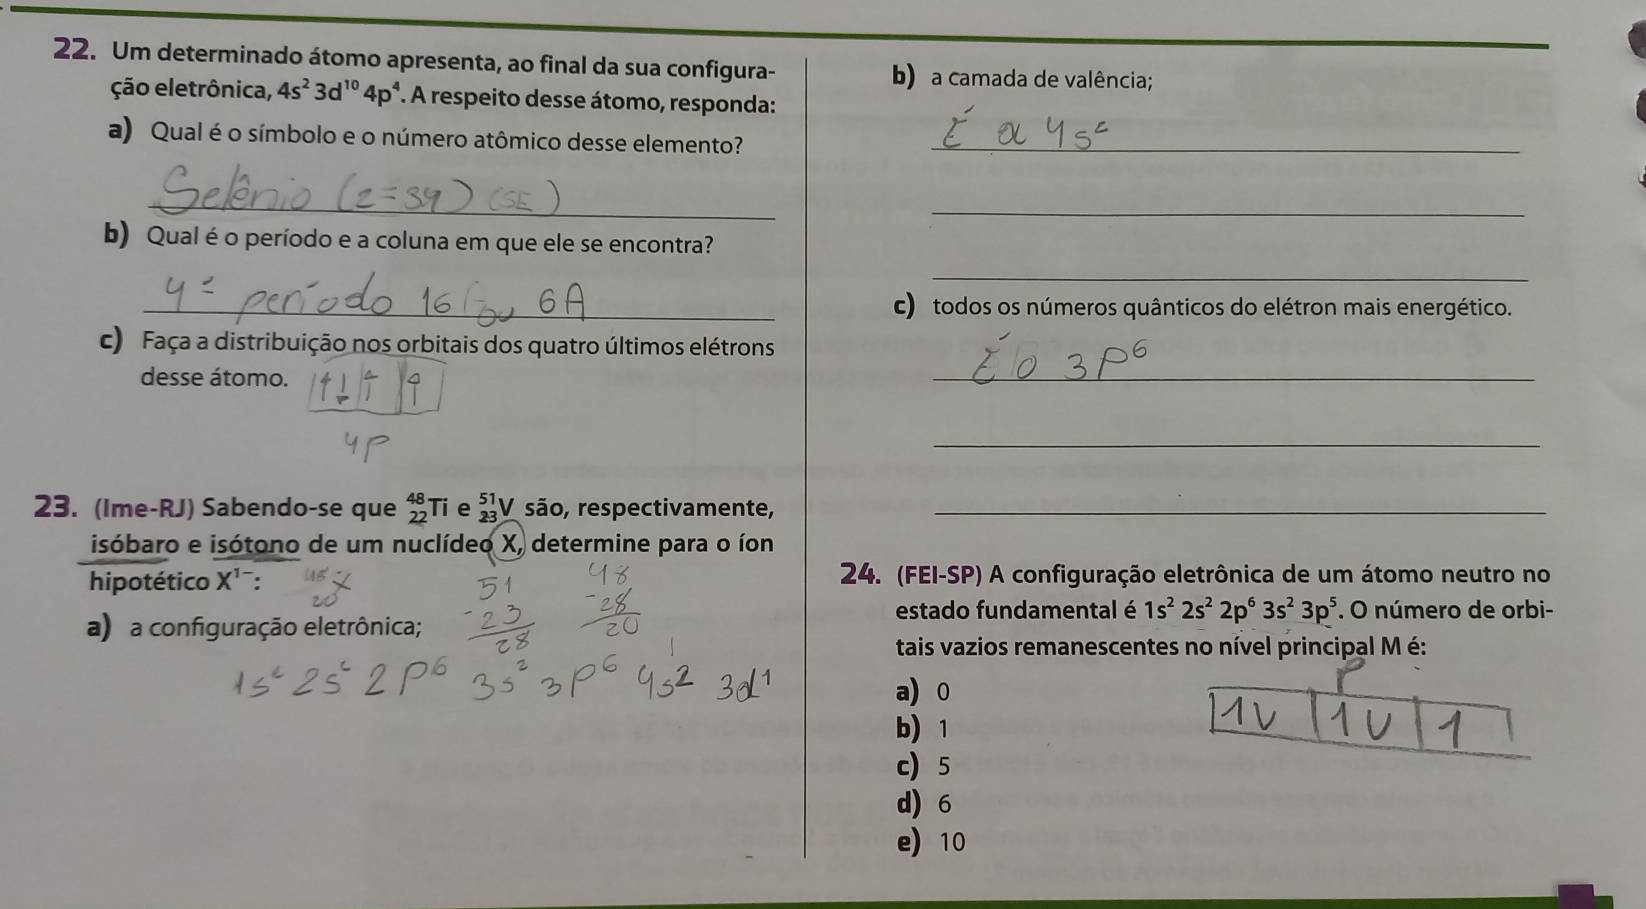 22. Um determinado átomo apresenta, ao final da sua configura-
ção eletrônica, 4s² 3d¹⁰ 4p⁴. A respeito desse átomo, responda:
a) Qual é o símbolo e o número atômico desse elemento?
Selênio (z=34) (SE)
b) Qual é o período e a coluna em que ele se encontra?
4º período 16 ou 6A
c) Faça a distribuição nos orbitais dos quatro últimos elétrons
desse átomo.
4p
23. (Ime-RJ) Sabendo-se que ⁴⁸₂₂Ti e ⁵¹₂₃V são, respectivamente,
isóbaro e isótono de um nuclídeo X, determine para o íon
hipotético X¹⁻:
48
20 X
51
-23
28
48
-28
20
a) a configuração eletrônica;
1s² 2s² 2p⁶ 3s² 3p⁶ 4s² 3d¹
b) a camada de valência;
É a 4s²
c) todos os números quânticos do elétron mais energético.
É o 3p⁶
24. (FEI-SP) A configuração eletrônica de um átomo neutro no
estado fundamental é 1s² 2s² 2p⁶ 3s² 3p⁵. O número de orbi-
tais vazios remanescentes no nível principal M é:
a) 0
b) 1
c) 5
d) 6
e) 10
p